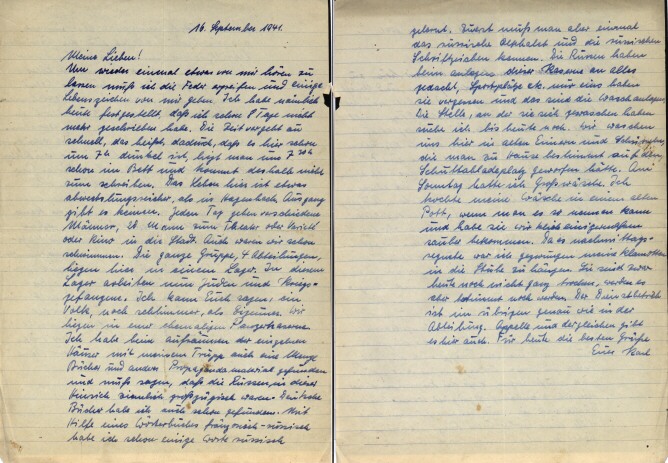 16. September 1941.
Meine Lieben!
Um wieder einmal etwas von mir hören zu
lassen muß ich die Feder ergreifen und einige
Lebenszeichen von mir geben. Ich habe nämlich
heute festgestellt, daß ich schon 8 Tage nicht
mehr geschrieben habe. Die Zeit vergeht zu
schnell, das heißt, dadurch, daß es hier schon
um 7 h dunkel ist, liegt man um 7 30 h
schon im Bett und kommt deshalb nicht
zum schreiben. Das Leben hier ist etwas
abwechslungsreicher, als in Hagenbach. Ausgang
gibt es keinen. Jeden Tag gehen verschiedene
Männer, 20 Mann zum Theater oder Varieté
oder Kino in die Stadt. Auch waren wir schon
schwimmen. Die ganze Gruppe, 4 Abteilungen,
liegen hier in einem Lager. In diesem
Lager arbeiten nun Juden und Kriegs-
gefangene. Ich kann Euch sagen, ein
Volk, noch schlimmer, als Zigeuner. Wir
liegen in einer ehemaligen Panzerkaserne.
Ich habe beim aufräumen der einzelnen
Häuser mit meinem Trupp auch eine Menge
Bücher und anderes Propagandamaterial gefunden
und muß sagen, daß die Russen, in dieser
Hinsicht ziemlich großzügig waren. Deutsche
Bücher habe ich auch schon gefunden. Mit
Hilfe eines Wörterbuches französisch-russisch
habe ich schon einige Worte russisch
gelernt. Zuerst muß man aber einmal
das russische Alphabet und die russischen
Schriftzeichen kennen. Die Russen haben
beim anlegen dieser Kaserne an alles
gedacht, Sportplätze etc. nur eins haben
sie vergessen und das sind die Waschanlagen.
Die Stelle, an der sie sich gewaschen haben
suche ich bis heute noch. Wir waschen
uns hier in alten Eimern und
die man zu Hause bestimmt auf den
Schuttabladeplatz geworfen hätte. Am
Sonntag hatte ich Großwäsche. Ich
kochte meine Wäsche in einem alten
Pott, wenn man es so nennen kann
und habe sie wirklich einigermaßen
sauber bekommen. Da es nachmittags
regnete war ich gezwungen meine Klamotten
in die Stube zu hängen. Sie sind zwar
heute noch nicht ganz trocken, werden es
aber bestimmt noch werden. Der Dienstbetrieb
ist im übrigen genau wie in der
Abteilung. Appelle und dergleichen gibt
es hier auch. Für heute die besten Grüße
Euer Karl